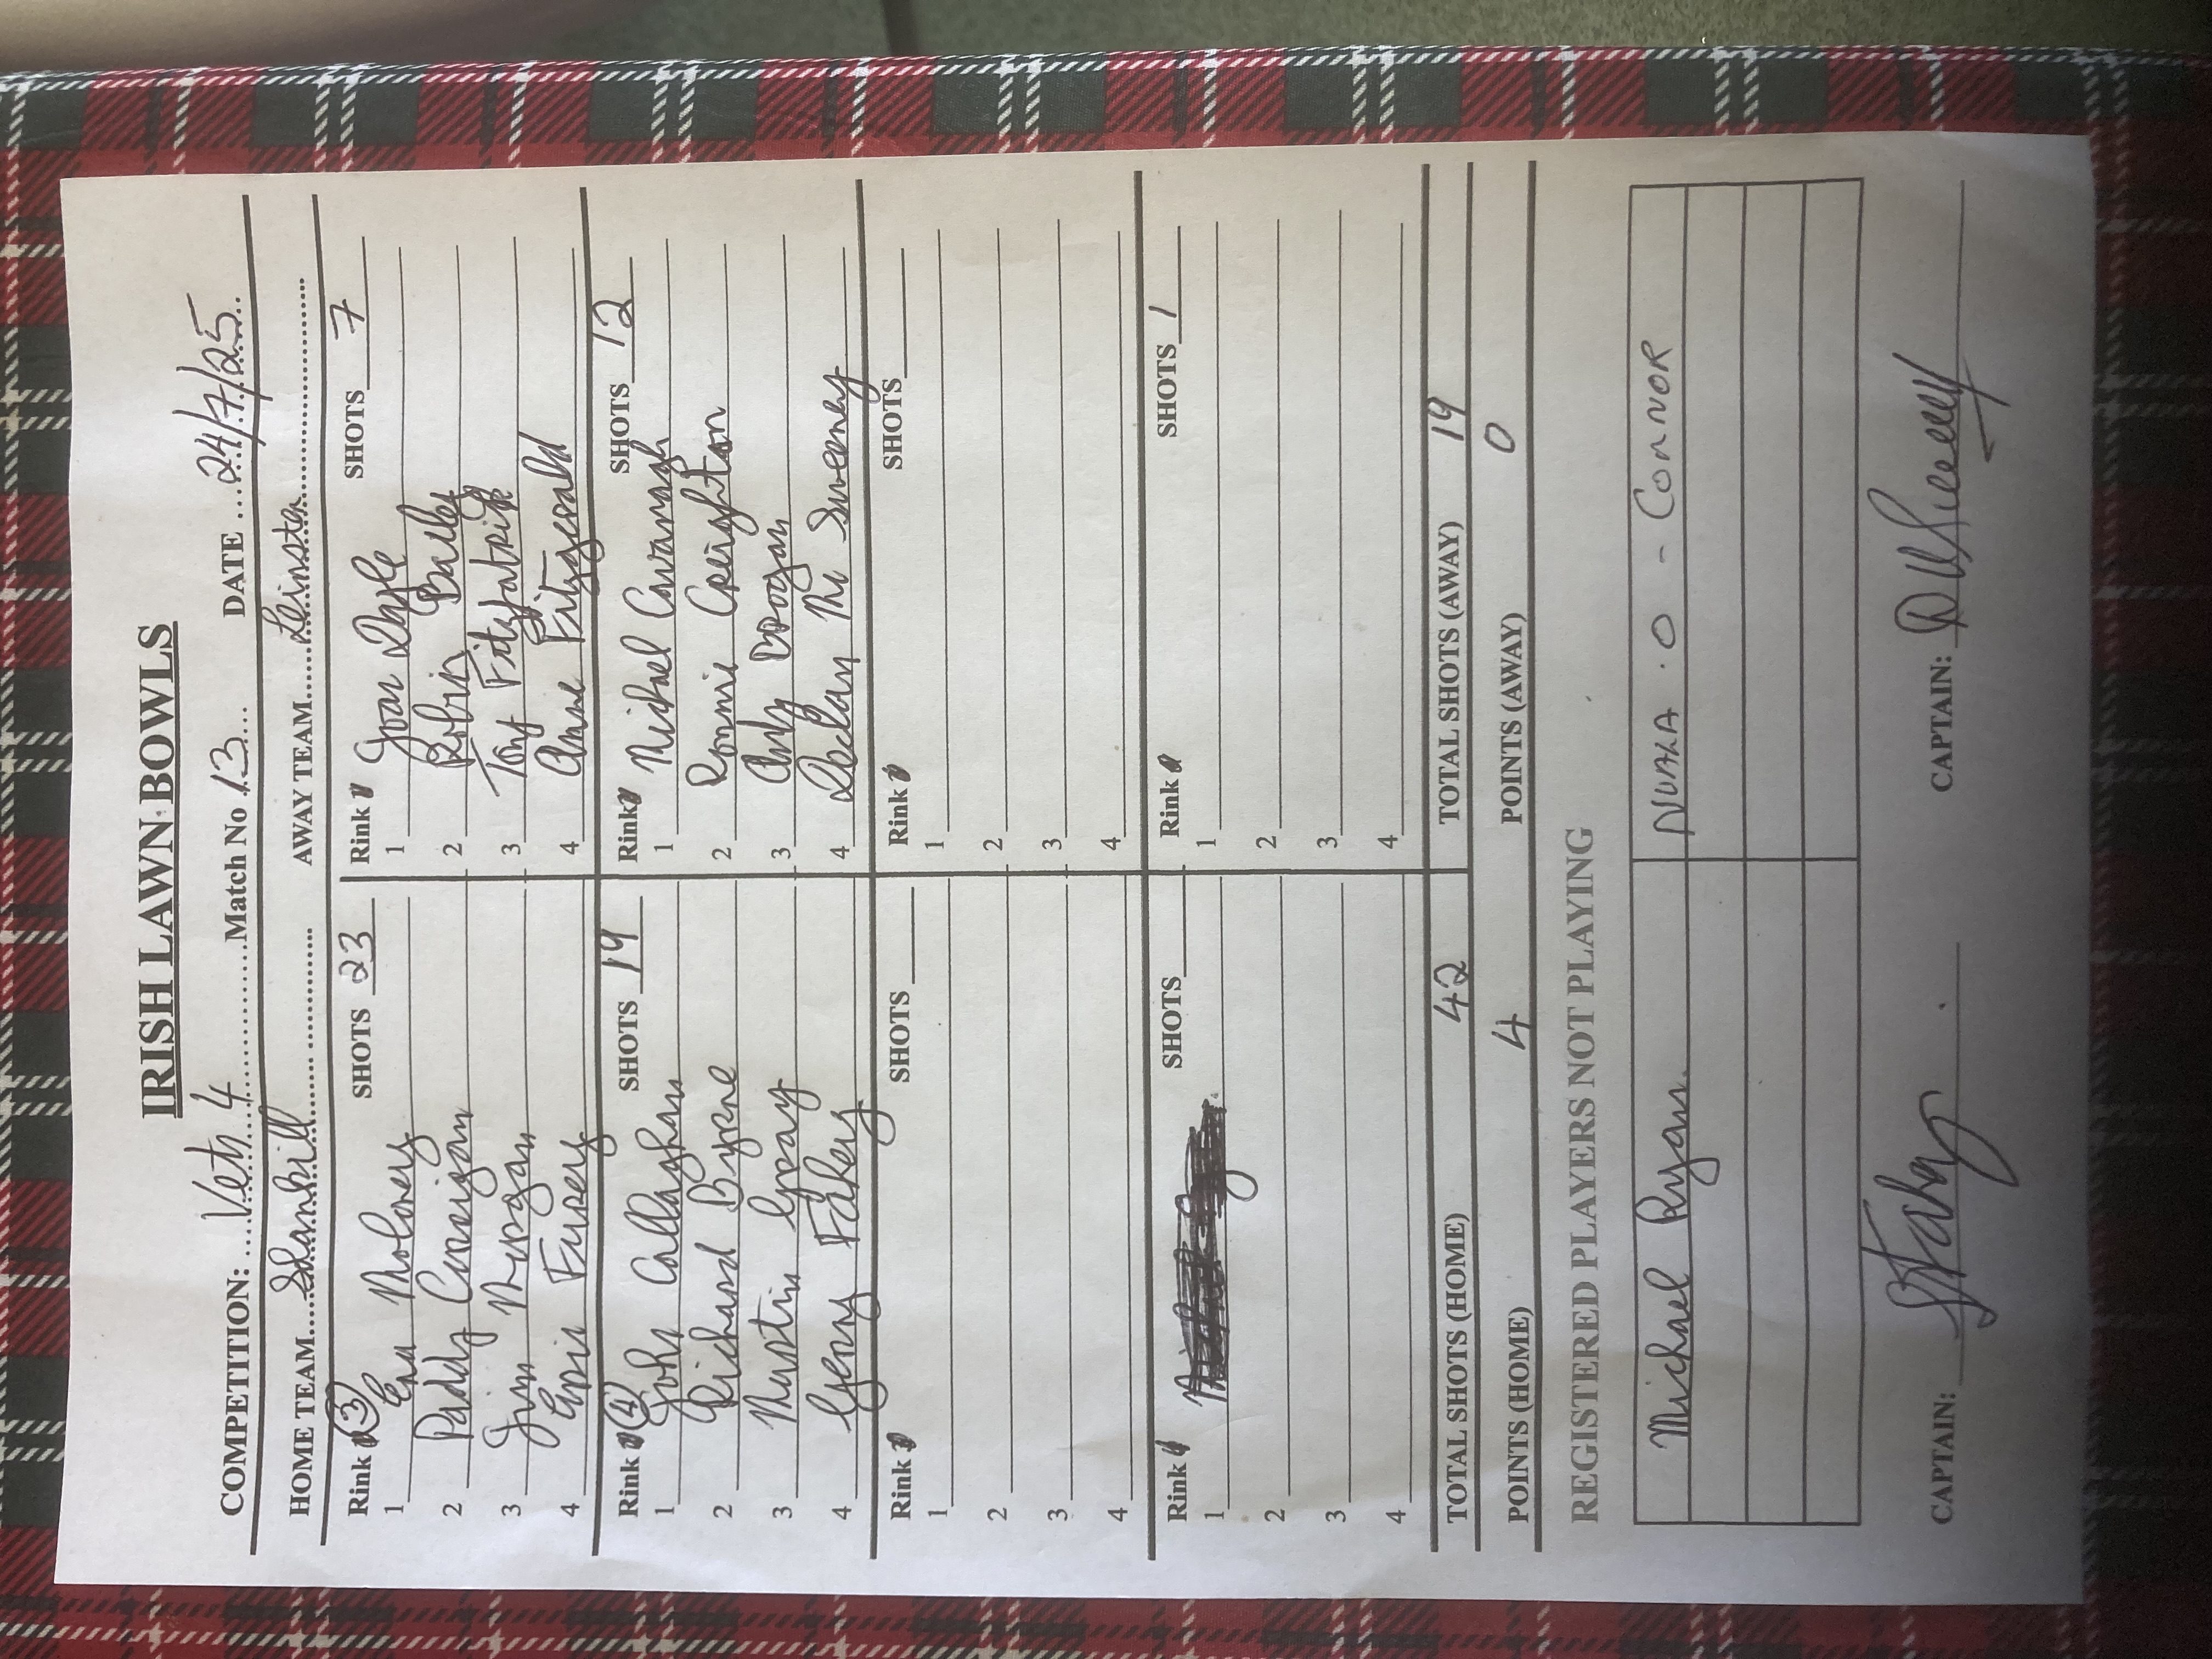 IRISH LAWN BOWLS
COMPETITION: ....Vets 4............Match No .13.... DATE ...24/7/25..
HOME TEAM....Shankill........... AWAY TEAM.....Leinster...........
Rink 3 SHOTS 23 Rink SHOTS 7
1 Moloney 1 Joan Doyle
2 Paddy Corrigan 2 Robin Bailey
3 Jim Morgan 3 Tony Fitzpatrick
4 Furey 4 Anne Fitzgerald
Rink 4 SHOTS 19 Rink SHOTS 12
1 John Callaghan 1 Michael Cavanagh
2 Richard Byrne 2 Ronnie Creighton
3 Martin Gray 3 Andy
4 Gerry Fahey 4 Declan Mc Sweeney
Rink SHOTS Rink SHOTS
1 1
2 2
3 3
4 4
Rink SHOTS Rink SHOTS /
1 1
2 2
3 3
4 4
TOTAL SHOTS (HOME) 42 TOTAL SHOTS (AWAY) 19
POINTS (HOME) 4 POINTS (AWAY) 0
REGISTERED PLAYERS NOT PLAYING
Michael Ryan. NUALA . O - CONNOR
CAPTAIN: CAPTAIN: